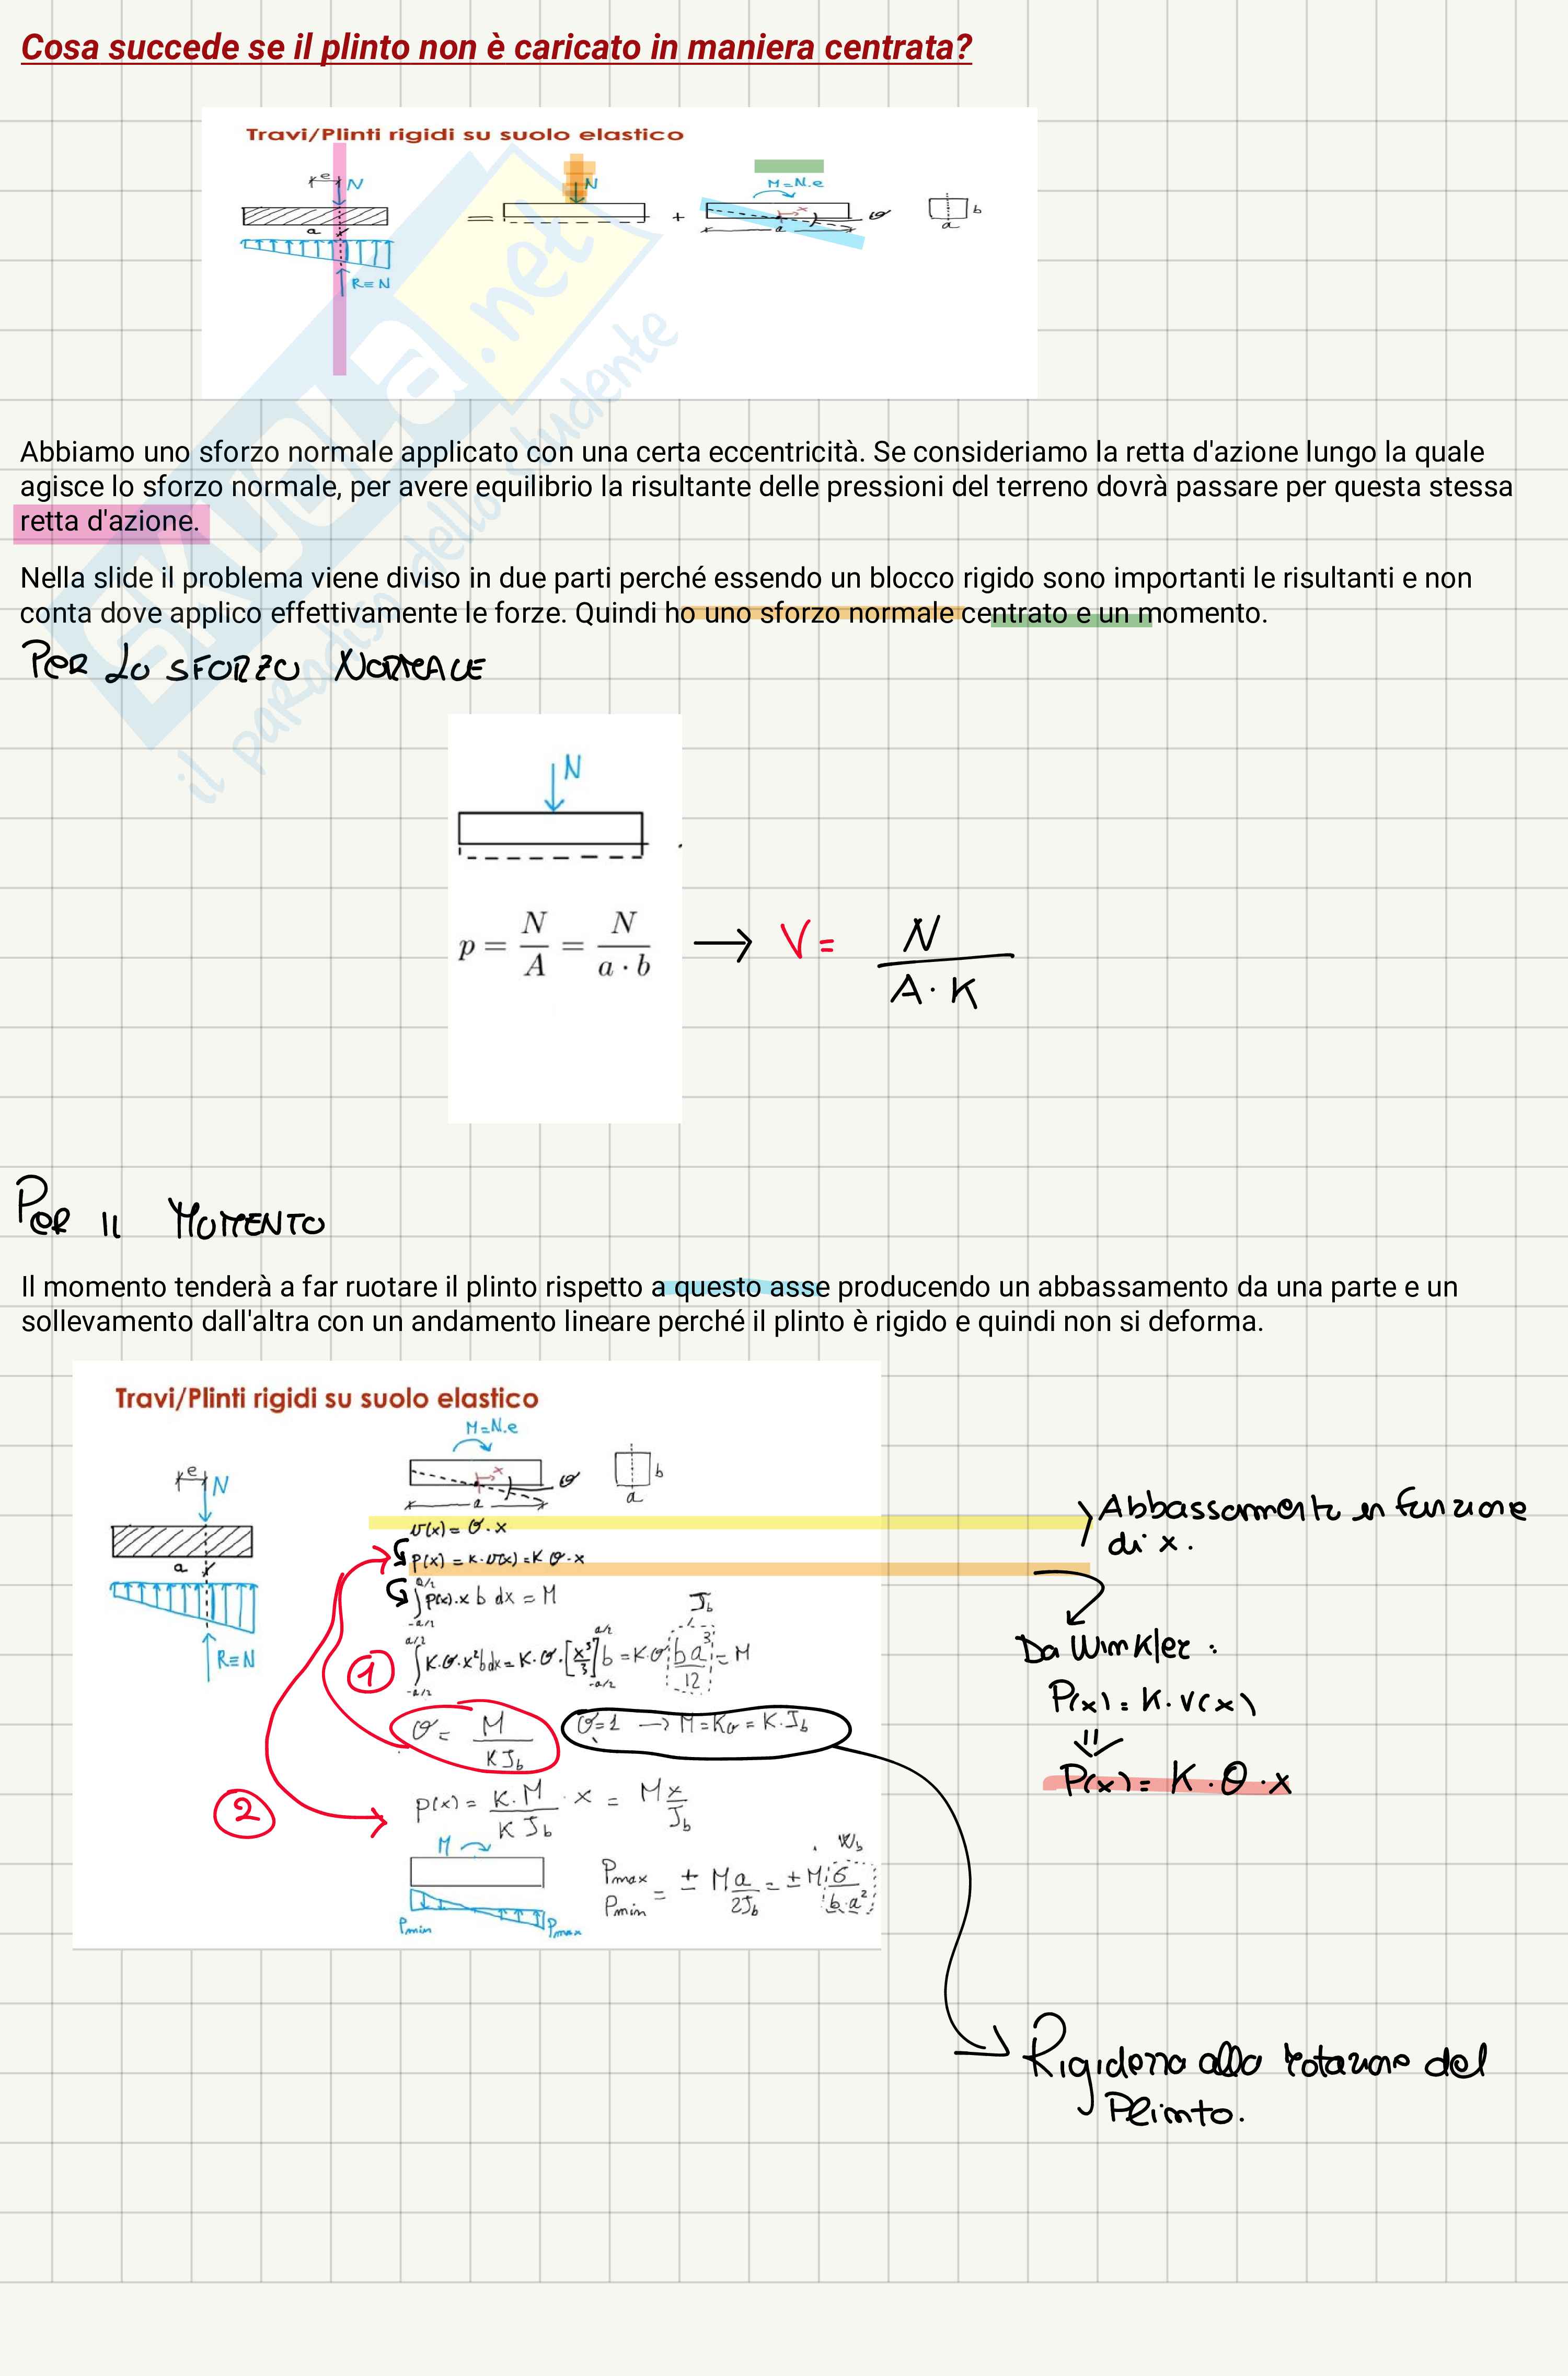 Cosa succede se il plinto non è caricato in maniera centrata?
Travi/Plinti rigidi su suolo elastico
e N
a
R=N
=
N
+
M=N.e
x
a
θ
b
a
SKUOLA.net
il paradiso dello studente
Abbiamo uno sforzo normale applicato con una certa eccentricità. Se consideriamo la retta d'azione lungo la quale
agisce lo sforzo normale, per avere equilibrio la risultante delle pressioni del terreno dovrà passare per questa stessa
retta d'azione.
Nella slide il problema viene diviso in due parti perché essendo un blocco rigido sono importanti le risultanti e non
conta dove applico effettivamente le forze. Quindi ho uno sforzo normale centrato e un momento.
PER LO SFORZO NORMALE
N
p = N/A = N/(a · b) → V = N/(A · K)
PER IL MOMENTO
Il momento tenderà a far ruotare il plinto rispetto a questo asse producendo un abbassamento da una parte e un
sollevamento dall'altra con un andamento lineare perché il plinto è rigido e quindi non si deforma.
Travi/Plinti rigidi su suolo elastico
M=N.e
e N
a
R=N
x
a
θ
b
a
v(x) = θ·x
Abbassamento in funzione
di x.
p(x) = K·v(x) = K θ·x
∫_{-a/2}^{a/2} p(x)·x b dx = M
Jb
1
∫_{-a/2}^{a/2} K·θ·x²b dx = K·θ·[x³/3]_{-a/2}^{a/2} b = K·θ ba³/12 = M
Da Winkler:
P(x) = K·V(x)
P(x) = K·θ·x
θ = M/(K Jb)
θ=1 → M = Kθ = K·Jb
2
p(x) = K·M/(K Jb) · x = M x/Jb
M
Pmin
Pmax
Wb
Pmax
Pmin
= ± M a/(2Jb) = ± M 6/(b·a²)
Rigidezza alla rotazione del
Plinto.